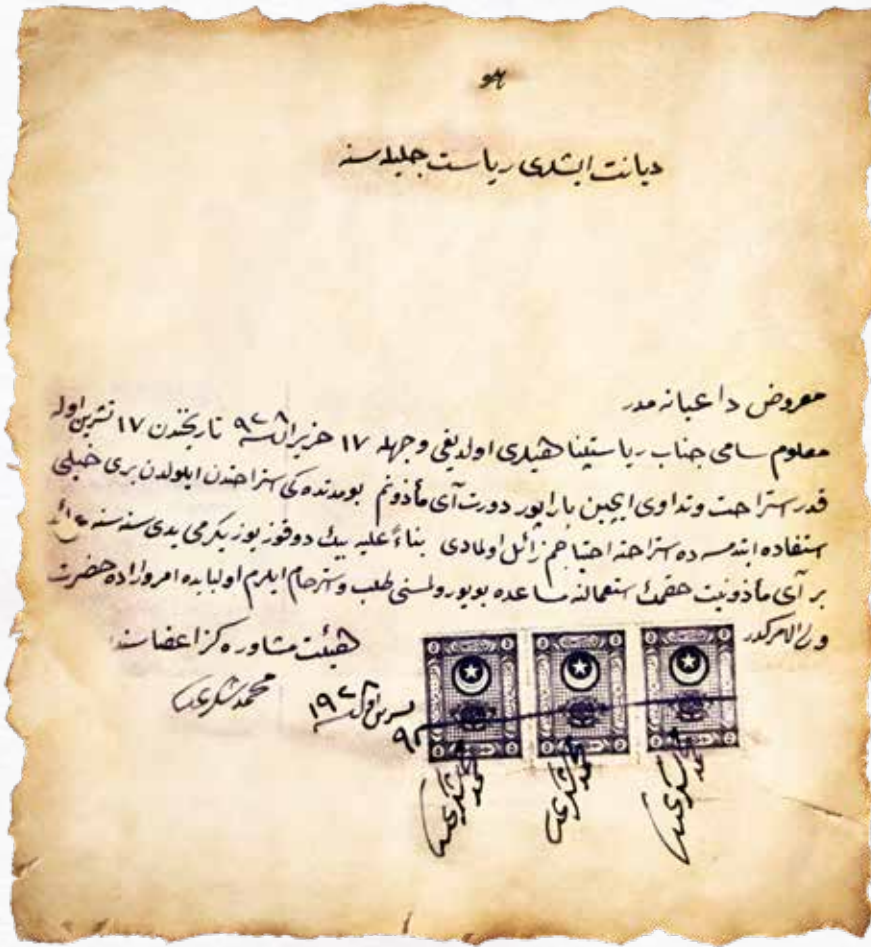 هو
دیانت ایشلری ریاست جلیله سنه
معروض داعیانه مدر
معلوم سامی جناب ریاستپناهیلری اولدیغی وجهله ١٧ حزیران سنه ٩٢٨ تاریخندن ١٧ تشرین اوله
قدر استراحت وتداوی ایچین باراپور دورت آی مأذونم بومدتده کی استراحتدن ایلولدن بری خیلی
استفاده ایتدمسه ده استراحته احتیاجم زائل اولمادی بناءً علیه بیك دوقوز یوز یكرمی یدی سنه سنه عائد
بر آی مأذونیت حقمك استعمالنه مساعده بویورولمسنی طلب واسترحام ایلرم اولبابده امر واراده حضرت
ولی الامركدر
هیئت مشاوره
اعضاسندن
محمد شكری
تشرین اول سنه ١٩٢٨
محمد شكری
محمد شكری
محمد شكری